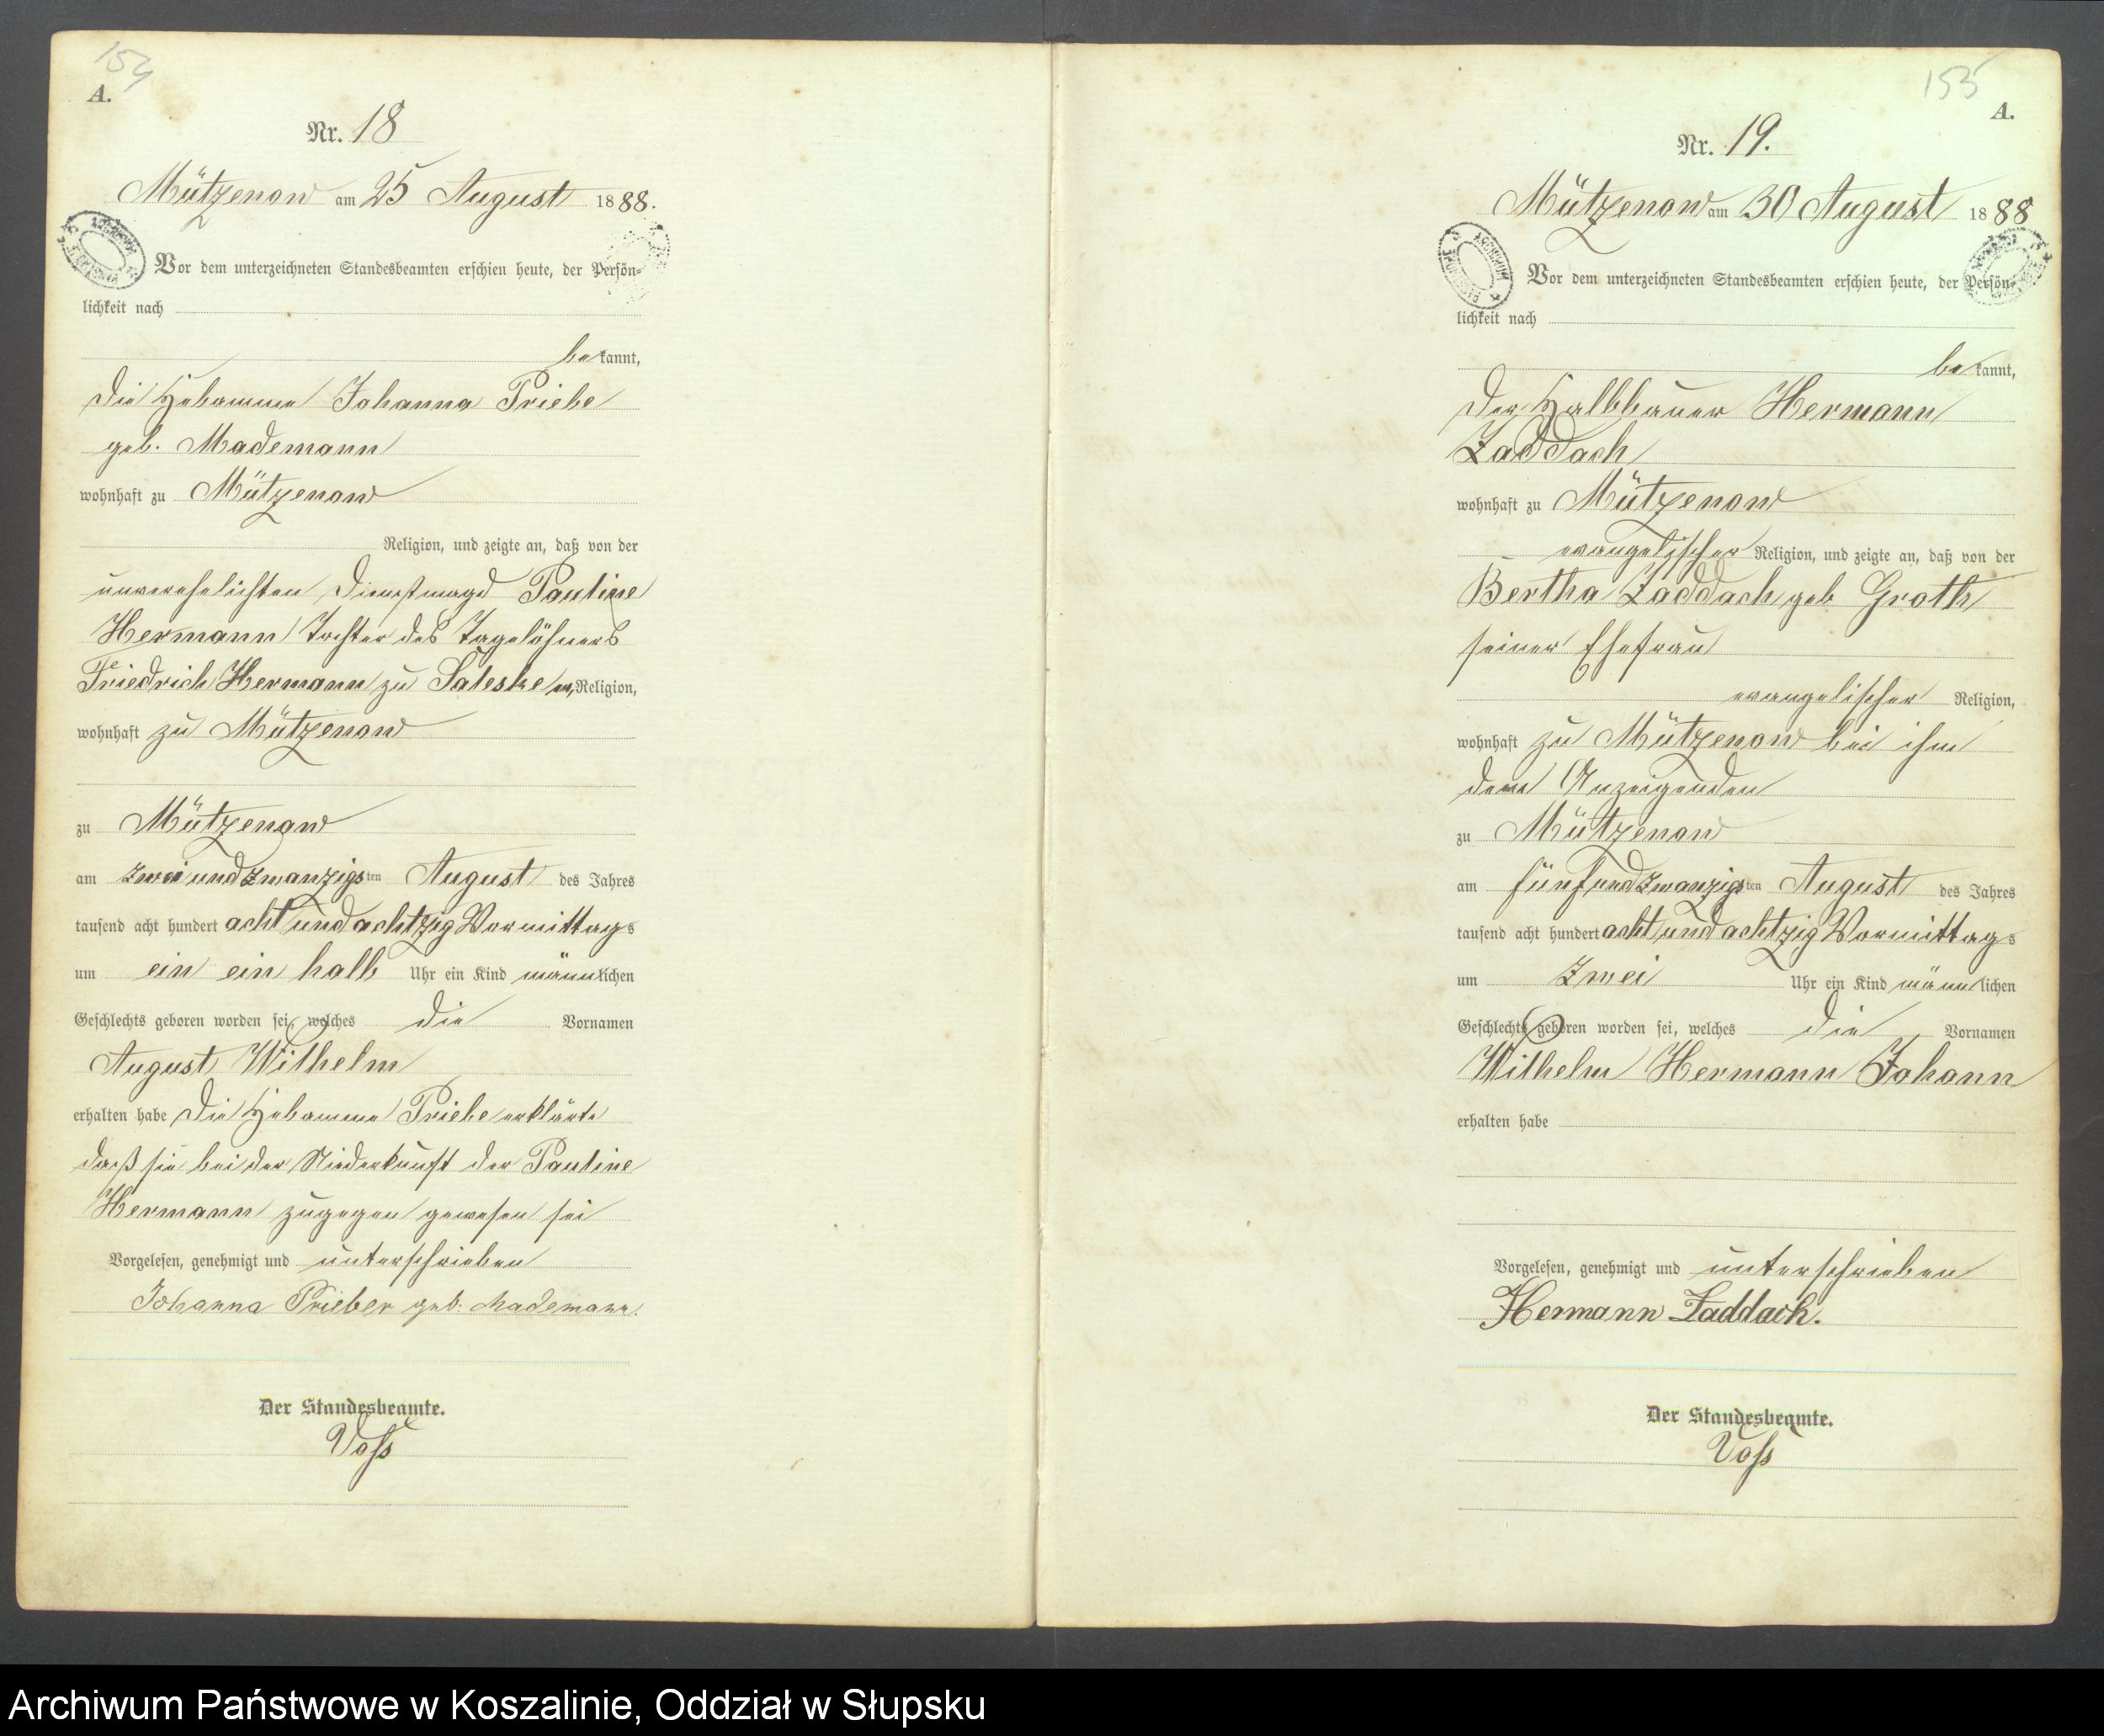 154
A.
Nr. 18
Mützenow am 25 August 1888.
Vor dem unterzeichneten Standesbeamten erschien heute, der Persön-
lichkeit nach
bekannt,
die Hebamme Johanna Priebe
geb. Mademann
wohnhaft zu Mützenow
Religion, und zeigte an, daß von der
unverehelichten Dienstmagd Pauline
Hermann Tochter des Tagelöhners
Friedrich Hermann zu Saleske ev, Religion,
wohnhaft zu Mützenow
zu Mützenow
am zwei und zwanzigsten August des Jahres
tausend acht hundert acht und achtzig Vormittags
um ein ein halb Uhr ein Kind männlichen
Geschlechts geboren worden sei, welches die Vornamen
August Wilhelm
erhalten habe Die Hebamme Priebe erklärte
daß sie bei der Niederkunft der Pauline
Hermann zugegen gewesen sei
Vorgelesen, genehmigt und unterschrieben
Johanna Prieber geb. Mademann.
Der Standesbeamte.
Voß
155
A.
Nr. 19.
Mützenow am 30 August 1888
Vor dem unterzeichneten Standesbeamten erschien heute, der Persön-
lichkeit nach
bekannt,
der Halbbauer Hermann
Zaddach
wohnhaft zu Mützenow
evangelischer Religion, und zeigte an, daß von der
Bertha Zaddach geb Groth
seiner Ehefrau
evangelischer Religion,
wohnhaft zu Mützenow bei ihm
dem Anzeigenden
zu Mützenow
am fünf und zwanzigsten August des Jahres
tausend acht hundert acht und achtzig Vormittags
um zwei Uhr ein Kind männlichen
Geschlechts geboren worden sei, welches die Vornamen
Wilhelm Hermann Johann
erhalten habe
Vorgelesen, genehmigt und unterschrieben
Hermann Zaddach.
Der Standesbeamte.
Voß
Archiwum Państwowe w Koszalinie, Oddział w Słupsku